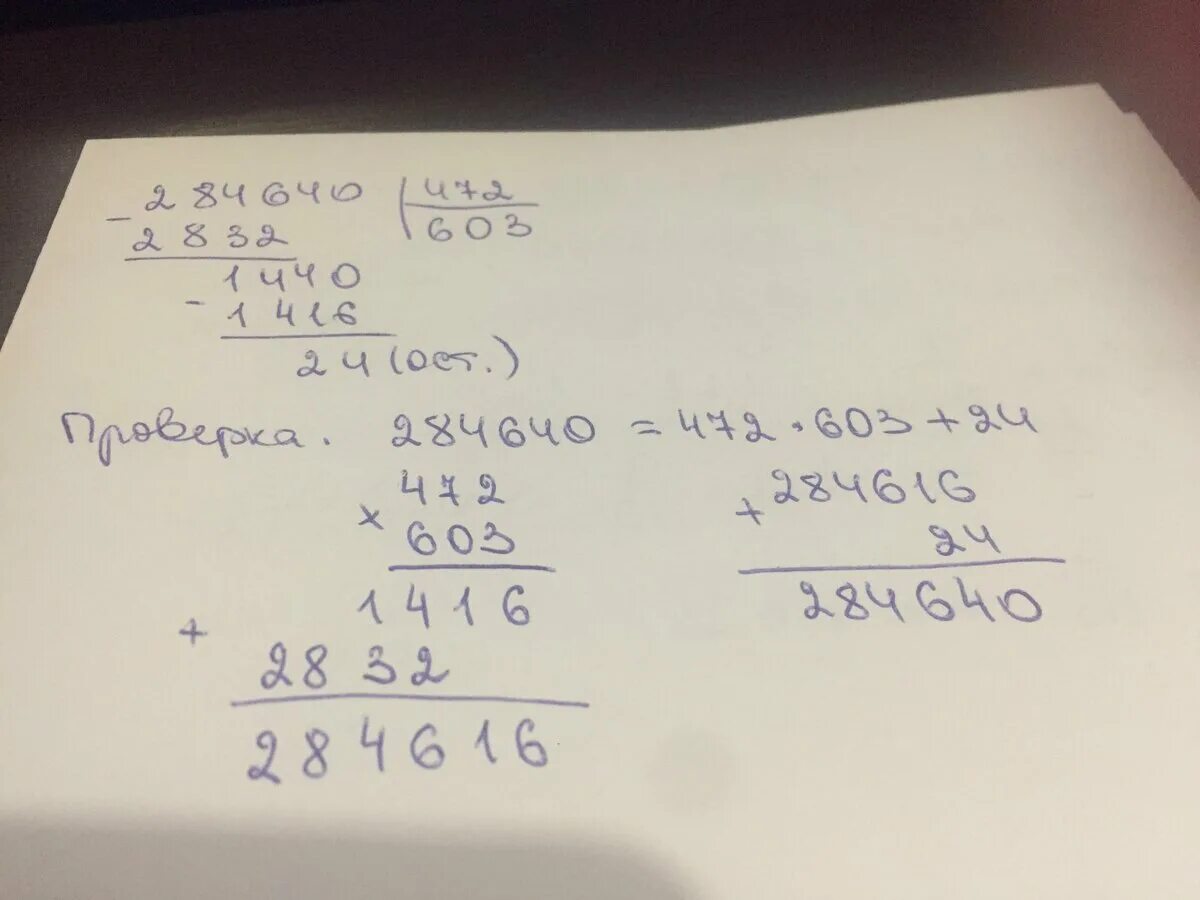 - 284640 | 472
2832 | 603
1440
- 1416
24 (ост.)
Проверка. 284640 = 472 · 603 + 24
× 472
603
1416
+ 2832
284616
+ 284616
24
284640